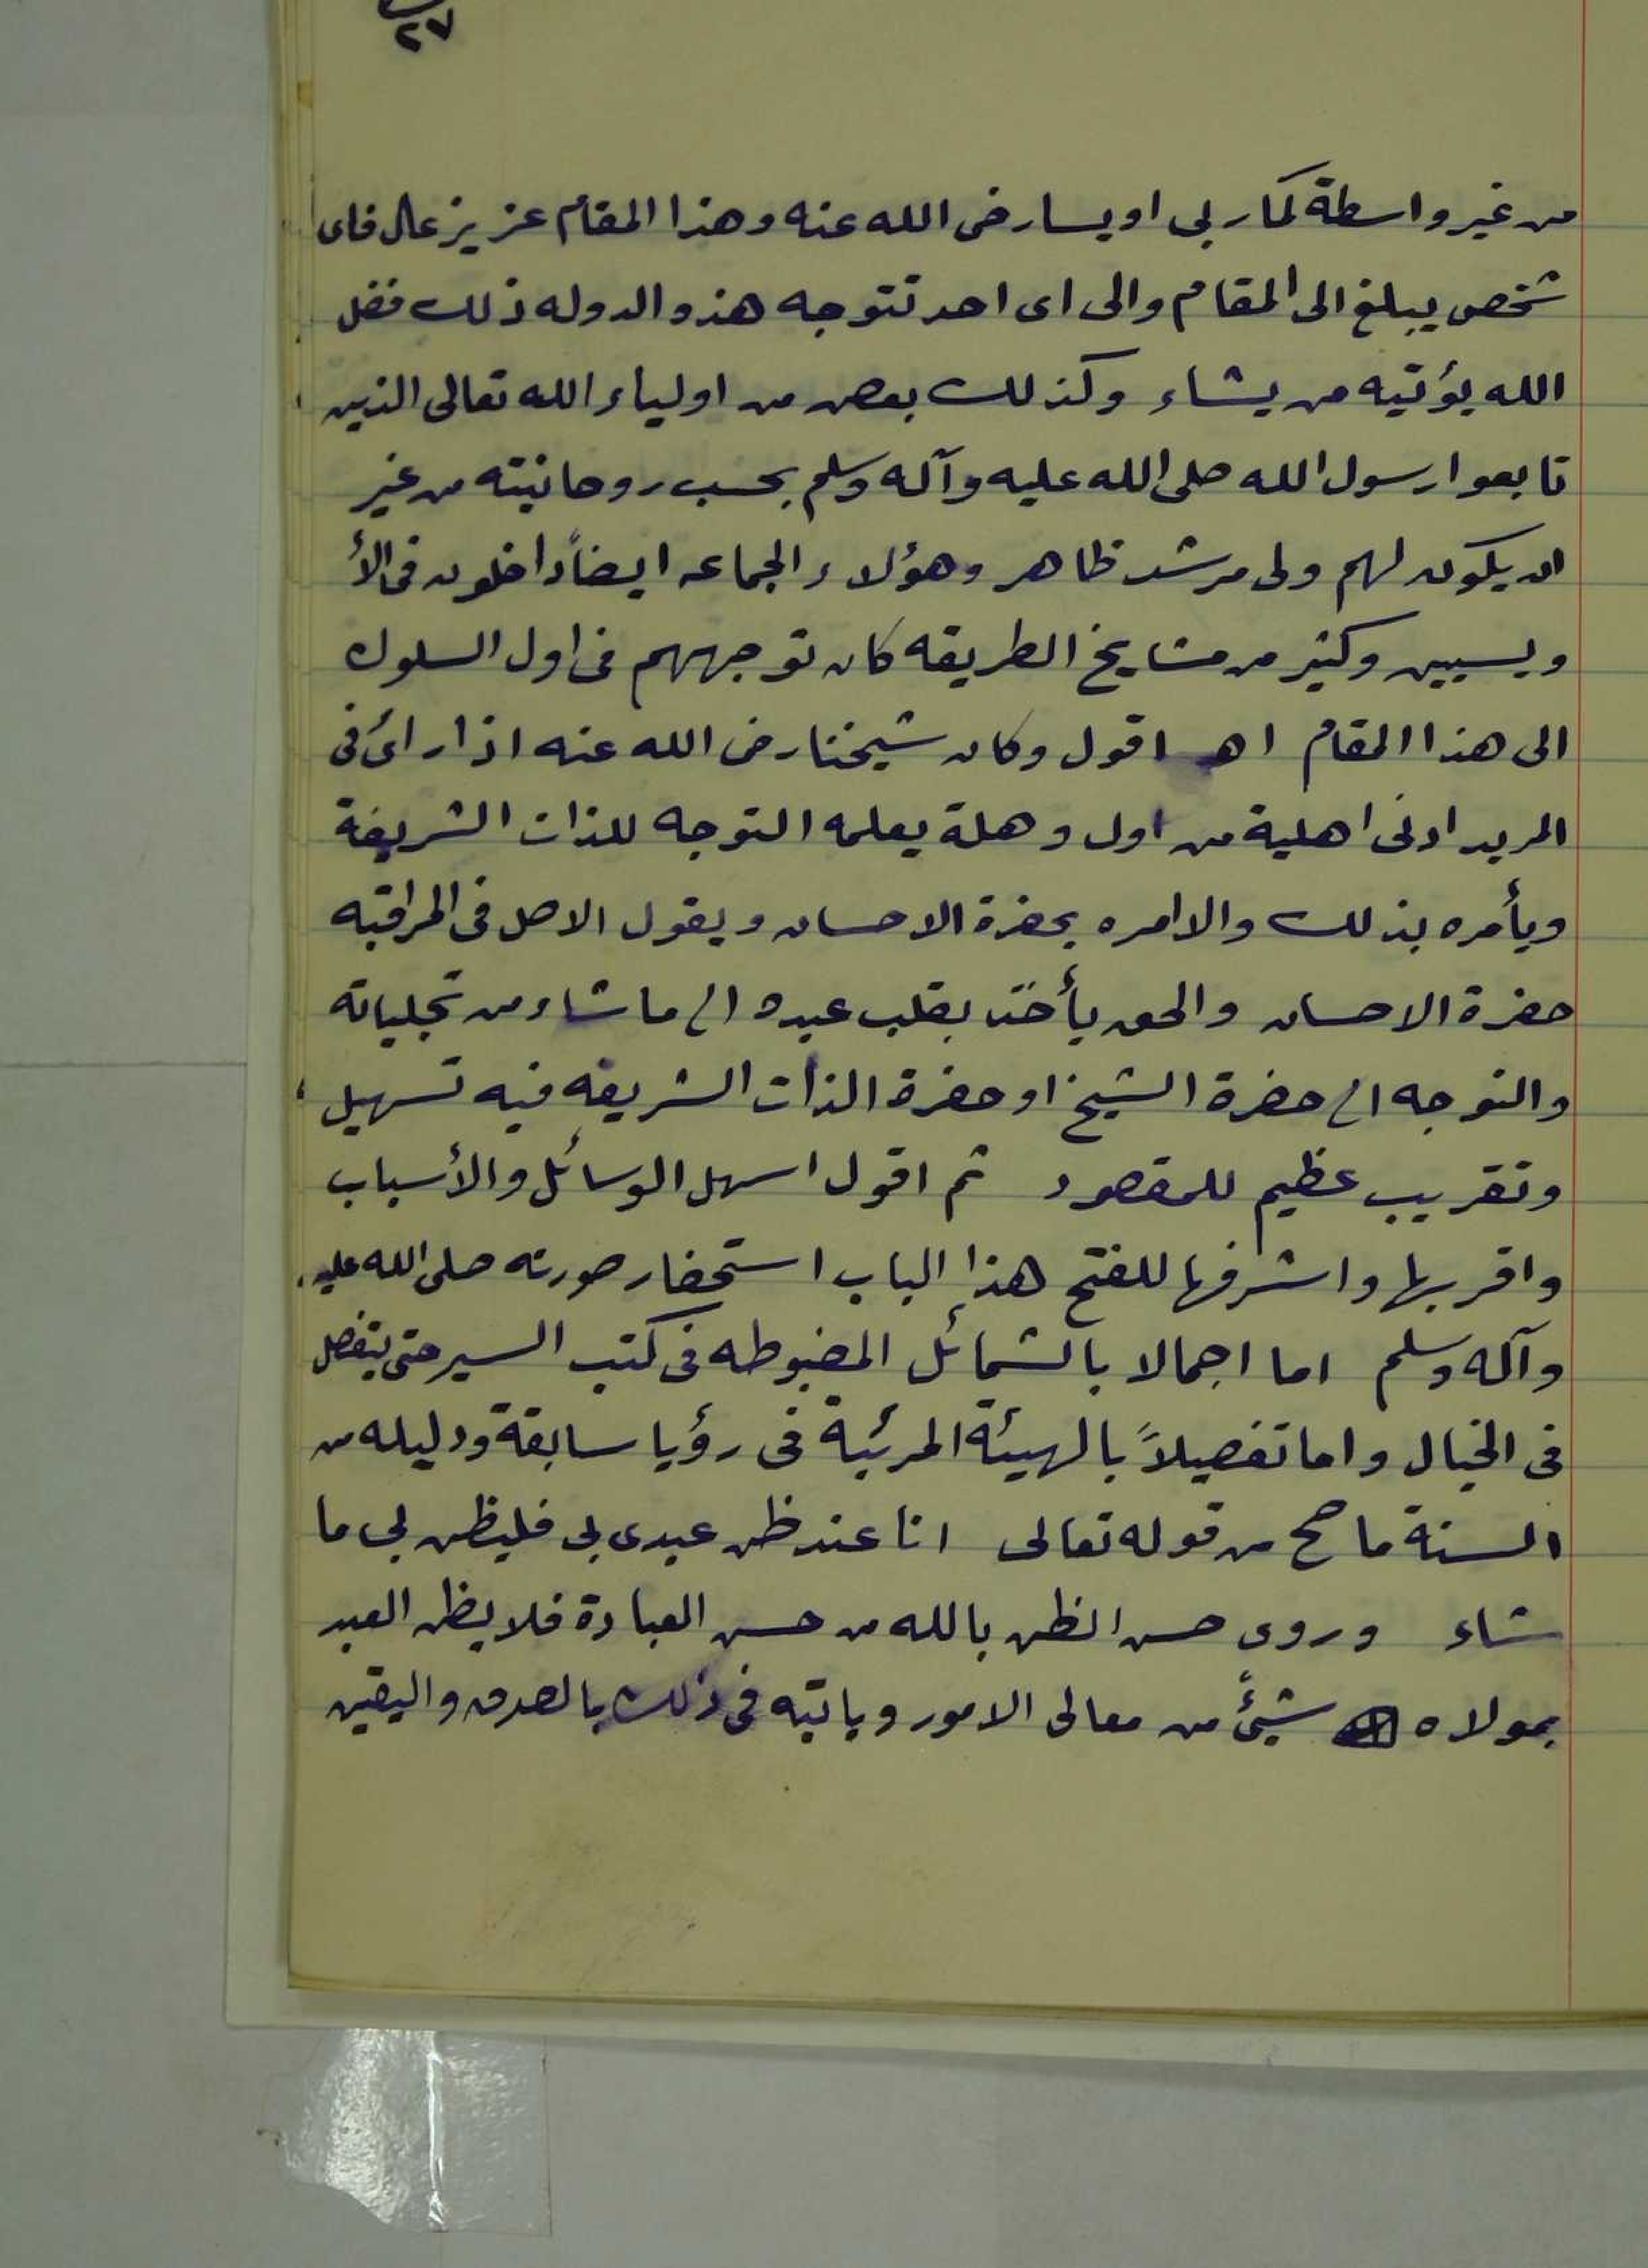 ٢٧
من غير واسطة كما ربى اويسا رضى الله عنه وهذا المقام عزيز عال فاى
شخص يبلغ الى المقام والى اى احد تتوجه هذه الدوله ذلك فضل
الله يؤتيه من يشاء وكذلك بعض من اولياء الله تعالى الذين
تابعوا رسول الله صلى الله عليه وآله وسلم بحسب روحانيته من غير
ان يكون لهم ولى مرشد ظاهر وهؤلاء الجماعه ايضاً داخلون فى الأ
ويسيين وكثير من مشايخ الطريقه كان توجههم فى اول السلوك
الى هذا المقام اهـ اقول وكان شيخنا رضى الله عنه اذا رائ فى
المريد ادنى اهلية من اول وهلة يعلمه التوجه للذات الشريفة
ويأمره بذلك والا امره بحضرة الاحسان ويقول الاصل فى المراقبه
حضرة الاحسان والحق يأخذ بقلب عبده الى ما شاء من تجلياته
والتوجه الى حضرة الشيخ او حضرة الذات الشريفه فيه تسهيل
وتقريب عظيم للمقصود ثم اقول اسهل الوسائل والأسباب
واقربها واشرفها للفتح هذا الباب استحضار صورته صلى الله عليه
وآله وسلم اما اجمالا بالشمائل المضبوطه فى كتب السير حتى يتفصل
فى الخيال واما تفصيلاً بالهيئة المرئية فى رؤيا سابقة ودليله من
السنة ما صح من قوله تعالى انا عند ظن عبدى بى فليظن بى ما
شاء وروى حسن الظن بالله من حسن العبادة فلا يظن العبد
بمولاه شيئً من معالى الامور وياتيه فى ذلك بالصدق واليقين